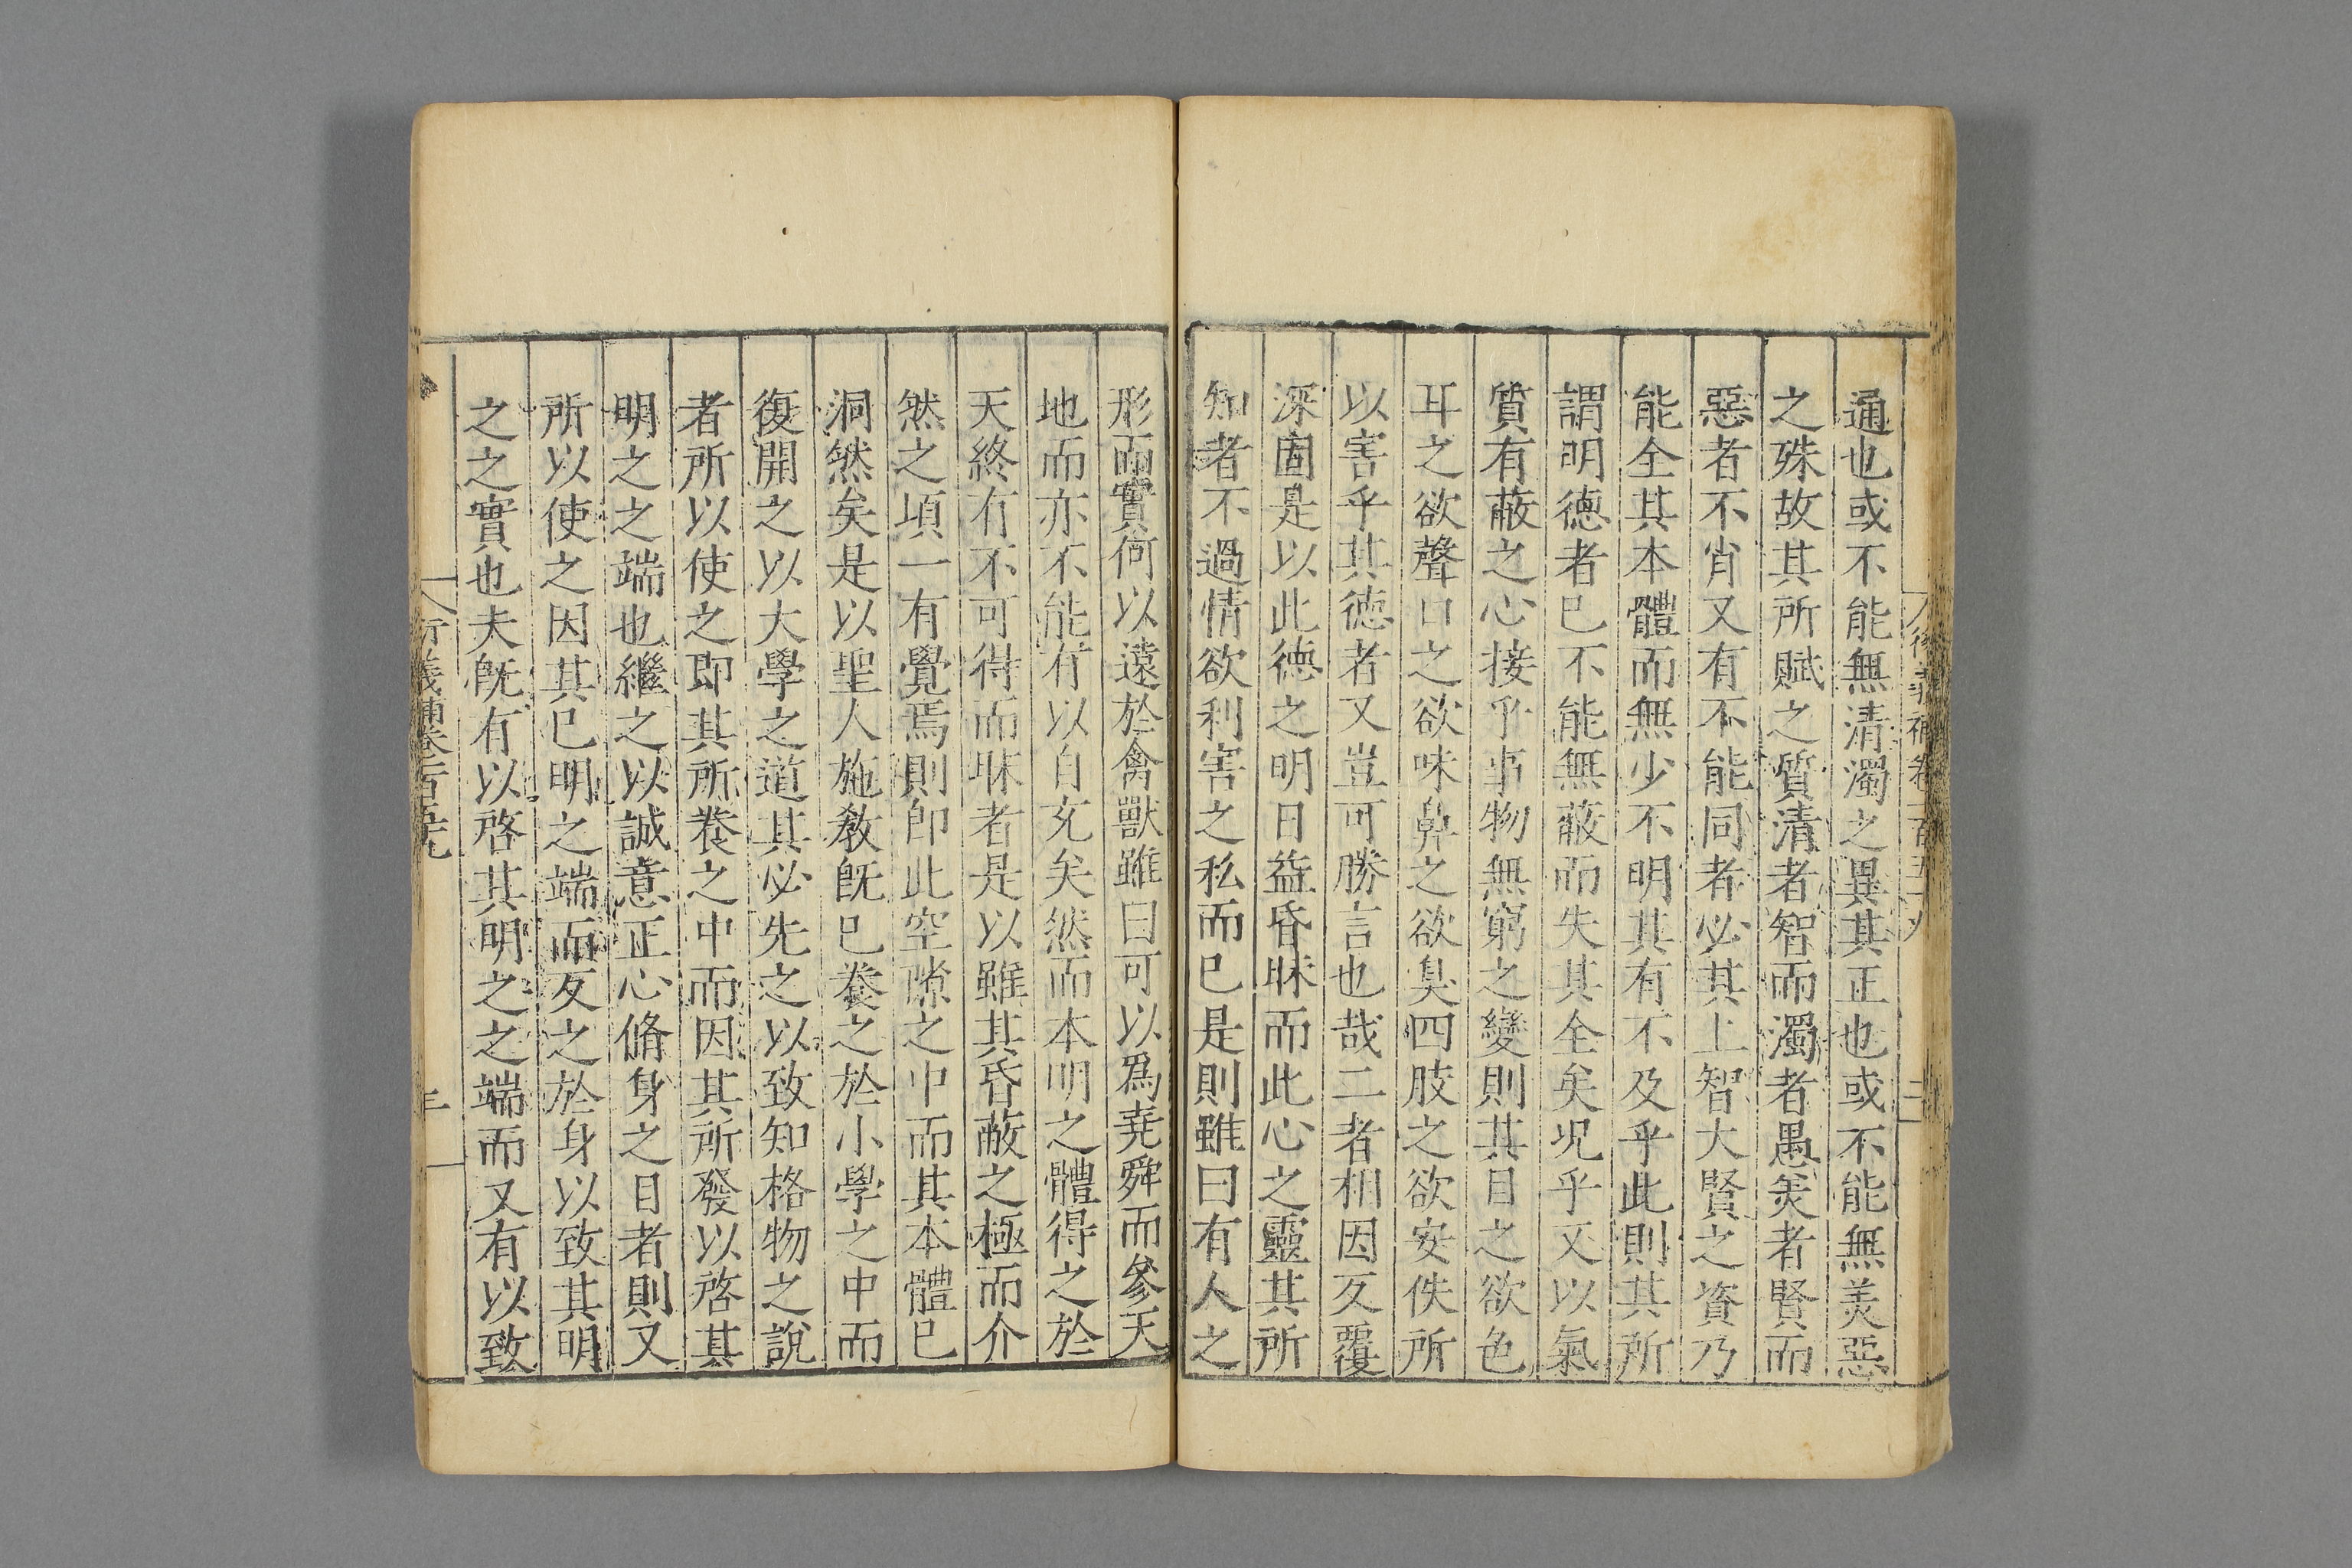 通也或不能無清濁之異其正也或不能無羙惡
之殊故其所賦之質清者智而濁者愚羙者賢而
惡者不肖又有不能同者必其上智大賢之資乃
能全其本體而無少不明其有不及乎此則其所
謂明德者已不能無蔽而失其全矣况乎又以氣
質有蔽之心接乎事物無窮之變則其目之欲色
耳之欲聲口之欲味鼻之欲臭四肢之欲安佚所
以害乎其德者又豈可勝言也哉二者相因反覆
深固是以此德之明日益昏昧而此心之靈其所
知者不過情欲利害之私而已是則雖曰有人之
形而實何以遠於禽獸雖曰可以爲堯舜而參天
地而亦不能有以自充矣然而本明之體得之於
天終有不可得而昧者是以雖其昏蔽之極而介
然之頃一有覺焉則即此空隙之中而其本體已
洞然矣是以聖人施敎旣已養之於小學之中而
復開之以大學之道其必先之以致知格物之說
者所以使之即其所養之中而因其所發以啓其
明之之端也繼之以誠意正心脩身之目者則又
所以使之因其已明之端而反之於身以致其明
之之實也夫旣有以啓其明之之端而又有以致